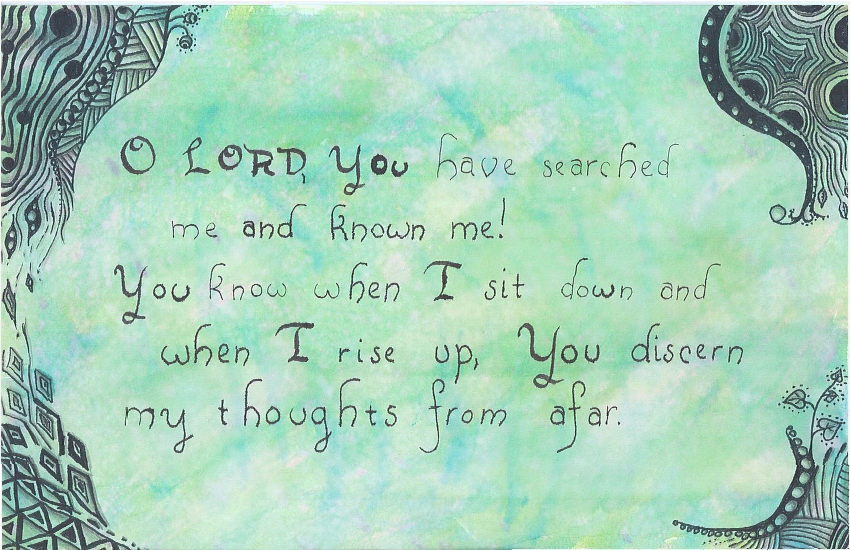 O LORD, You have searched
me and known me!
You know when I sit down and
when I rise up, You discern
my thoughts from afar.